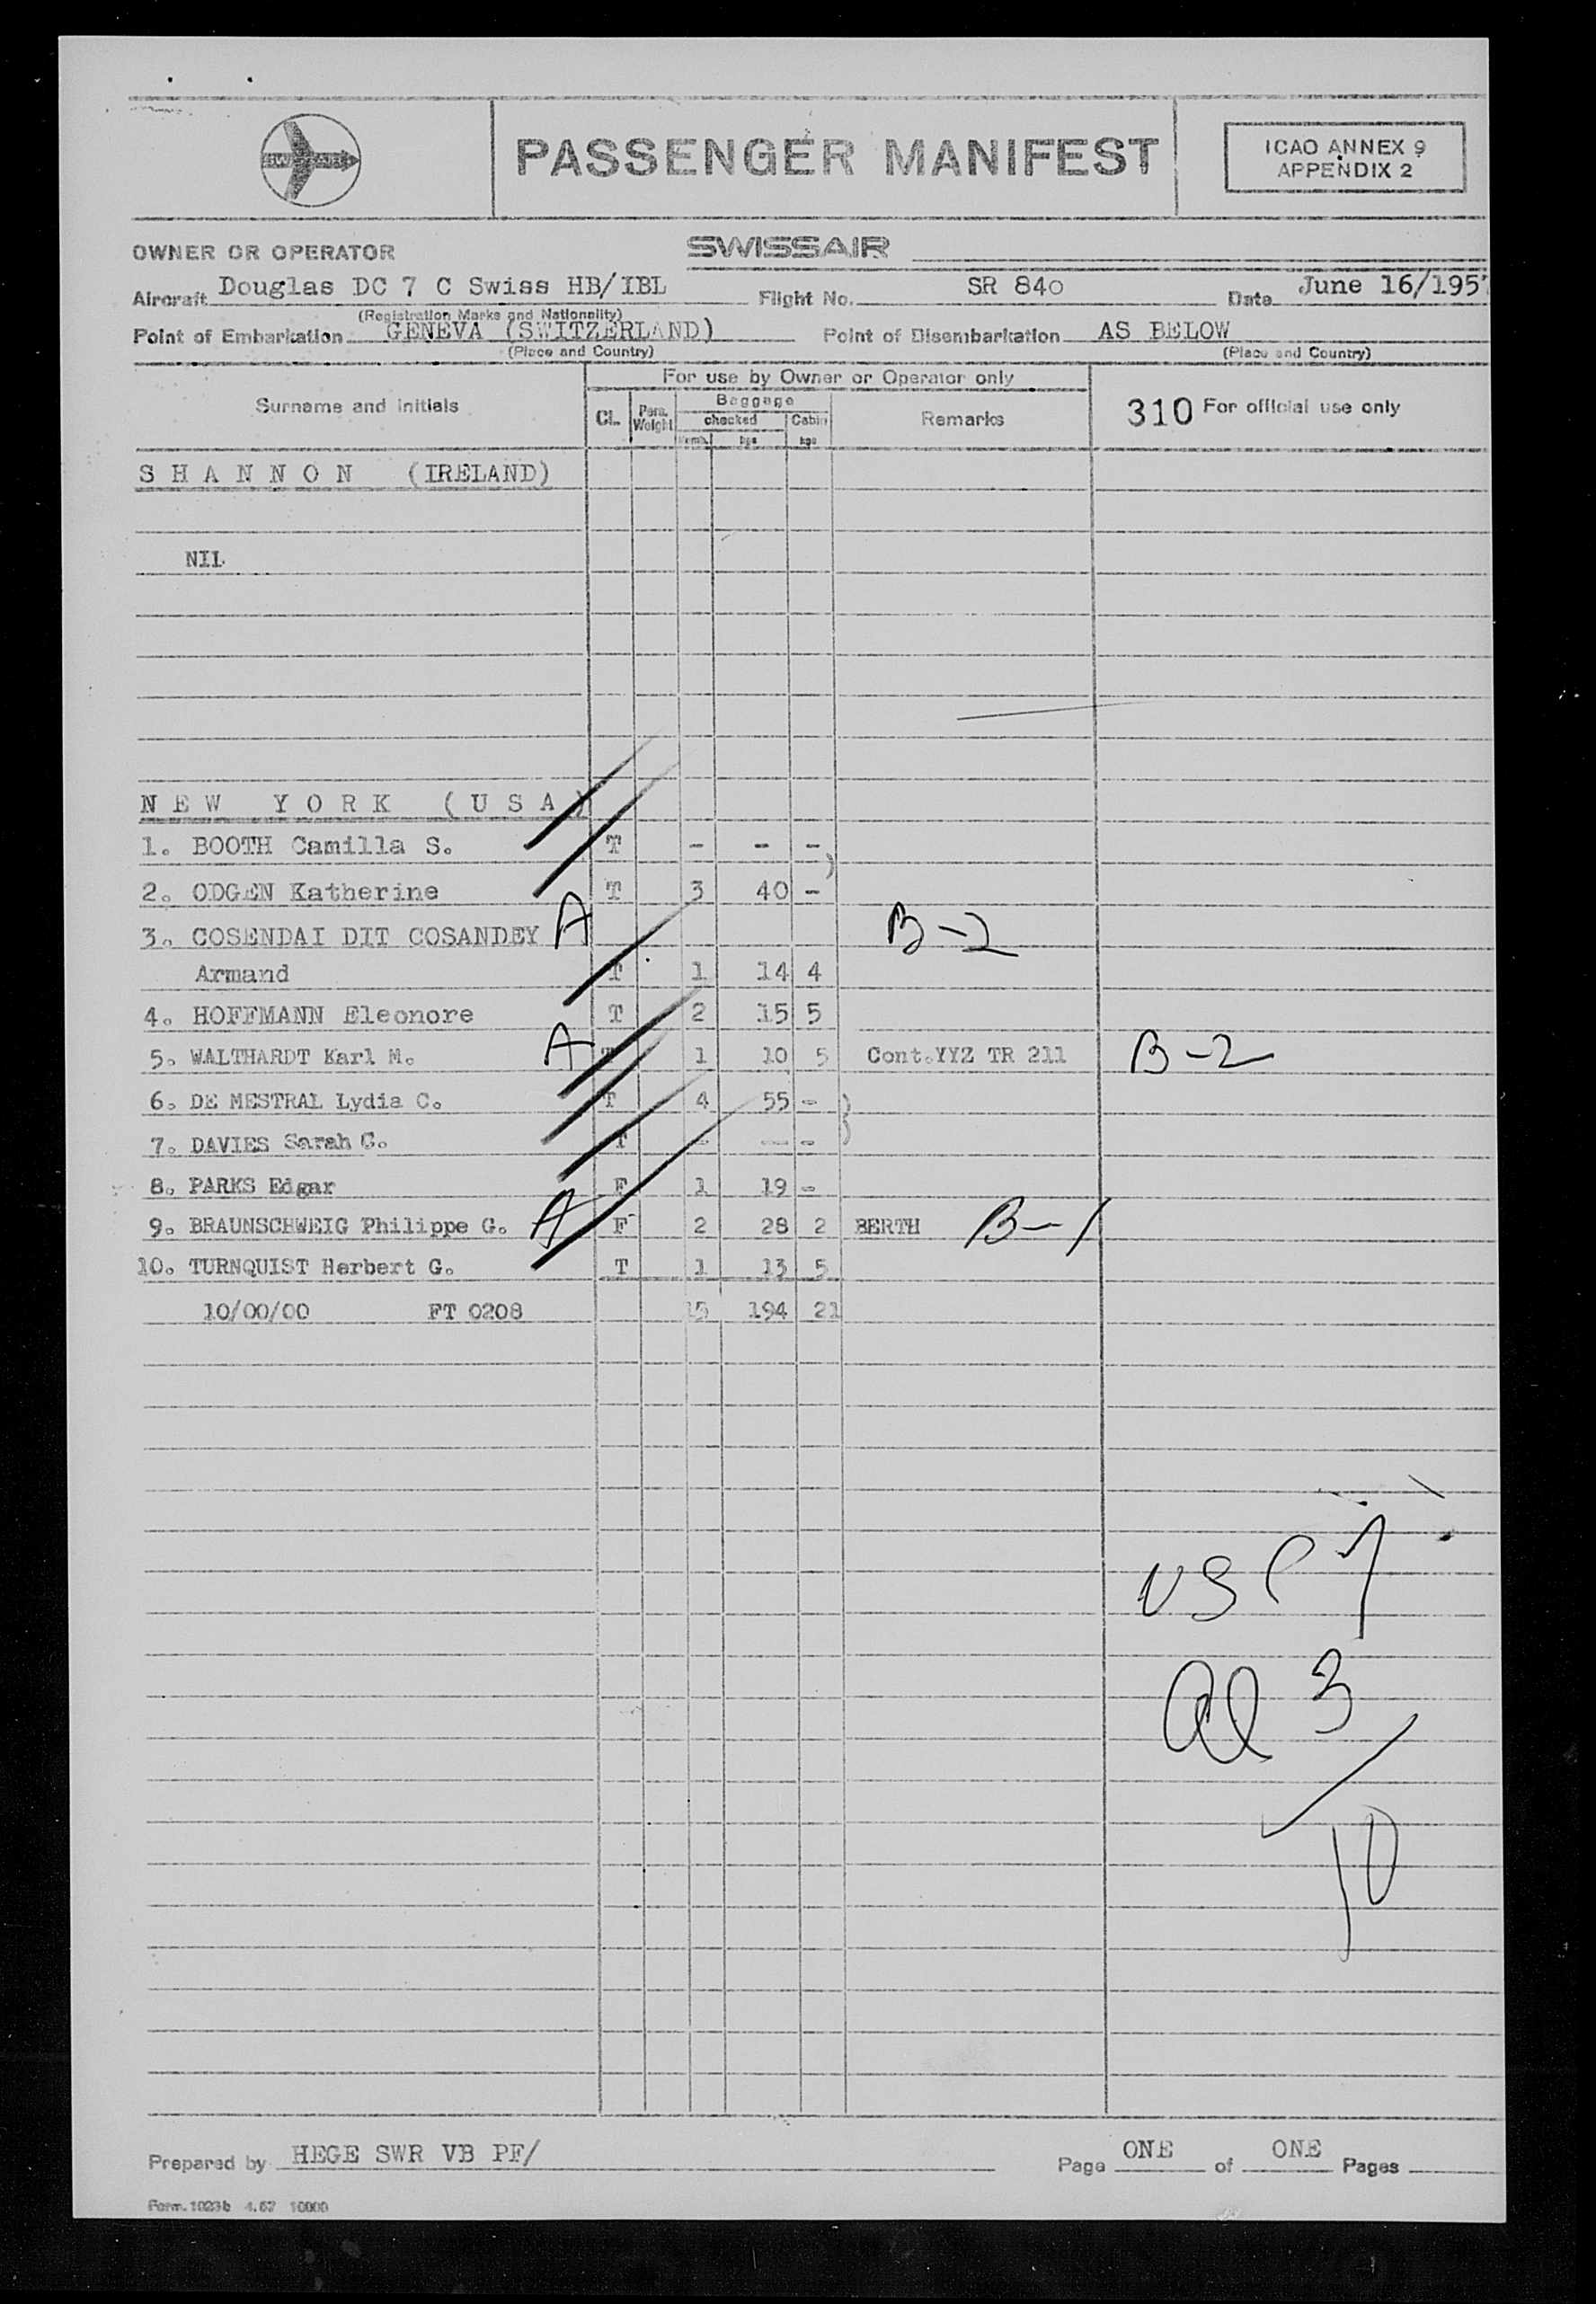 SWISSAIR
PASSENGER MANIFEST
ICAO ANNEX 9
APPENDIX 2
OWNER OR OPERATOR SWISSAIR
Aircraft Douglas DC 7 C Swiss HB/IBL Flight No. SR 840 Date June 16/195
(Registration Marks and Nationality)
Point of Embarkation GENEVA (SWITZERLAND) Point of Disembarkation AS BELOW
(Place and Country) (Place and Country)
For use by Owner or Operator only
Surname and initials CL. Pers. Weight Baggage checked Numb. kgs Cabin kgs Remarks 310 For official use only
S H A N N O N (IRELAND)
NIL
N E W Y O R K ( U S A )
1. BOOTH Camilla S. T - - -
2. ODGEN Katherine T 3 40 - )
3. COSENDAI DIT COSANDEY A B-2
Armand T 1 14 4
4. HOFFMANN Eleonore T 2 15 5
5. WALTHARDT Karl M. A T 1 10 5 Cont.YYZ TR 211 B-2
6. DE MESTRAL Lydia C. T 4 55 - )
7. DAVIES Sarah C. T - - - )
8. PARKS Edgar F 1 19 -
9. BRAUNSCHWEIG Philippe G. A F 2 28 2 BERTH B-1
10. TURNQUIST Herbert G. T 1 13 5
10/00/00 FT 0208 15 194 21
USC 7
al 3
10
Prepared by HEGE SWR VB PF/ Page ONE of ONE Pages
Form. 1023b 4.57 10000